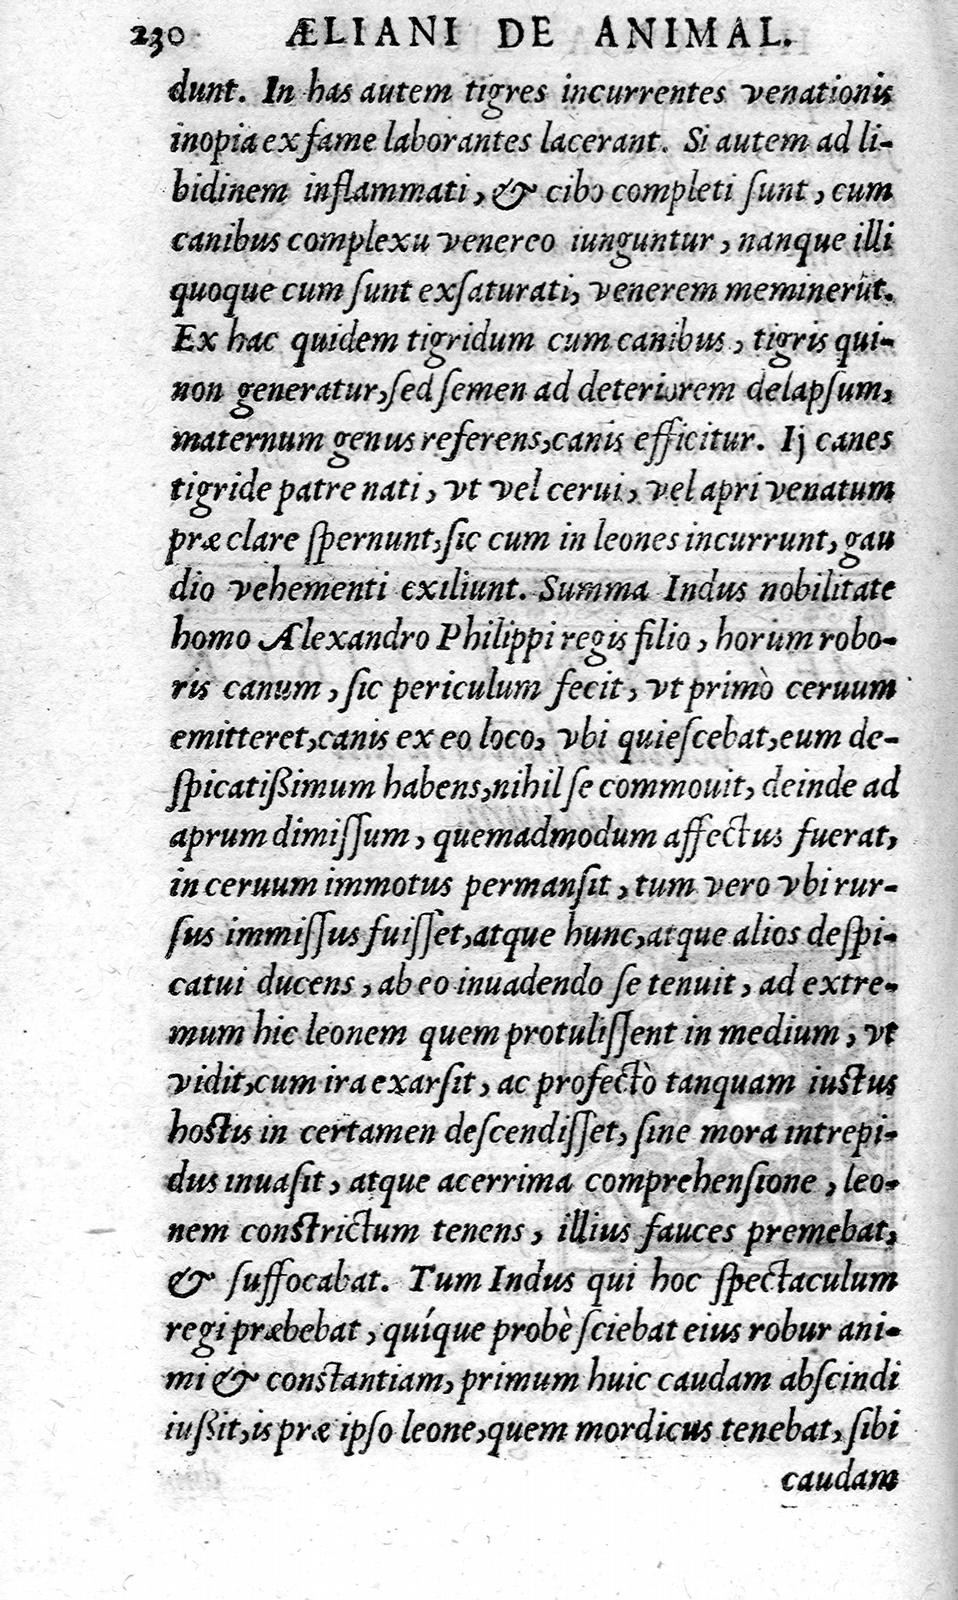 230 ÆLIANI DE ANIMAL.
dunt. In has autem tigres incurrentes venationis
inopia ex fame laborantes lacerant. Si autem ad li-
bidinem inflammati, & cibo completi ſunt, cum
canibus complexu venereo iunguntur, nanque illi
quoque cum ſunt exſaturati, venerem meminerũt.
Ex hac quidem tigridum cum canibus, tigris qui-
non generatur, ſed ſemen ad deteriorem delapſum,
maternum genus referens, canis efficitur. Ij canes
tigride patre nati, vt vel cerui, vel apri venatum
præclare ſpernunt, ſic cum in leones incurrunt, gau
dio vehementi exiliunt. Summa Indus nobilitate
homo Alexandro Philippi regis filio, horum robo-
ris canum, ſic periculum fecit, vt primò ceruum
emitteret, canis ex eo loco, vbi quieſcebat, eum de-
ſpicatißimum habens, nihil ſe commouit, deinde ad
aprum dimiſſum, quemadmodum affectus fuerat,
in ceruum immotus permanſit, tum vero vbi rur-
ſus immiſſus fuiſſet, atque hunc, atque alios deſpi-
catui ducens, ab eo inuadendo ſe tenuit, ad extre-
mum hic leonem quem protuliſſent in medium, vt
vidit, cum ira exarſit, ac profectò tanquam iuſtus
hoſtis in certamen deſcendiſſet, ſine mora intrepi-
dus inuaſit, atque acerrima comprehenſione, leo-
nem conſtrictum tenens, illius fauces premebat,
& ſuffocabat. Tum Indus qui hoc ſpectaculum
regi præbebat, quíque probè ſciebat eius robur ani-
mi & conſtantiam, primum huic caudam abſcindi
iußit, is præ ipſo leone, quem mordicus tenebat, ſibi
caudam